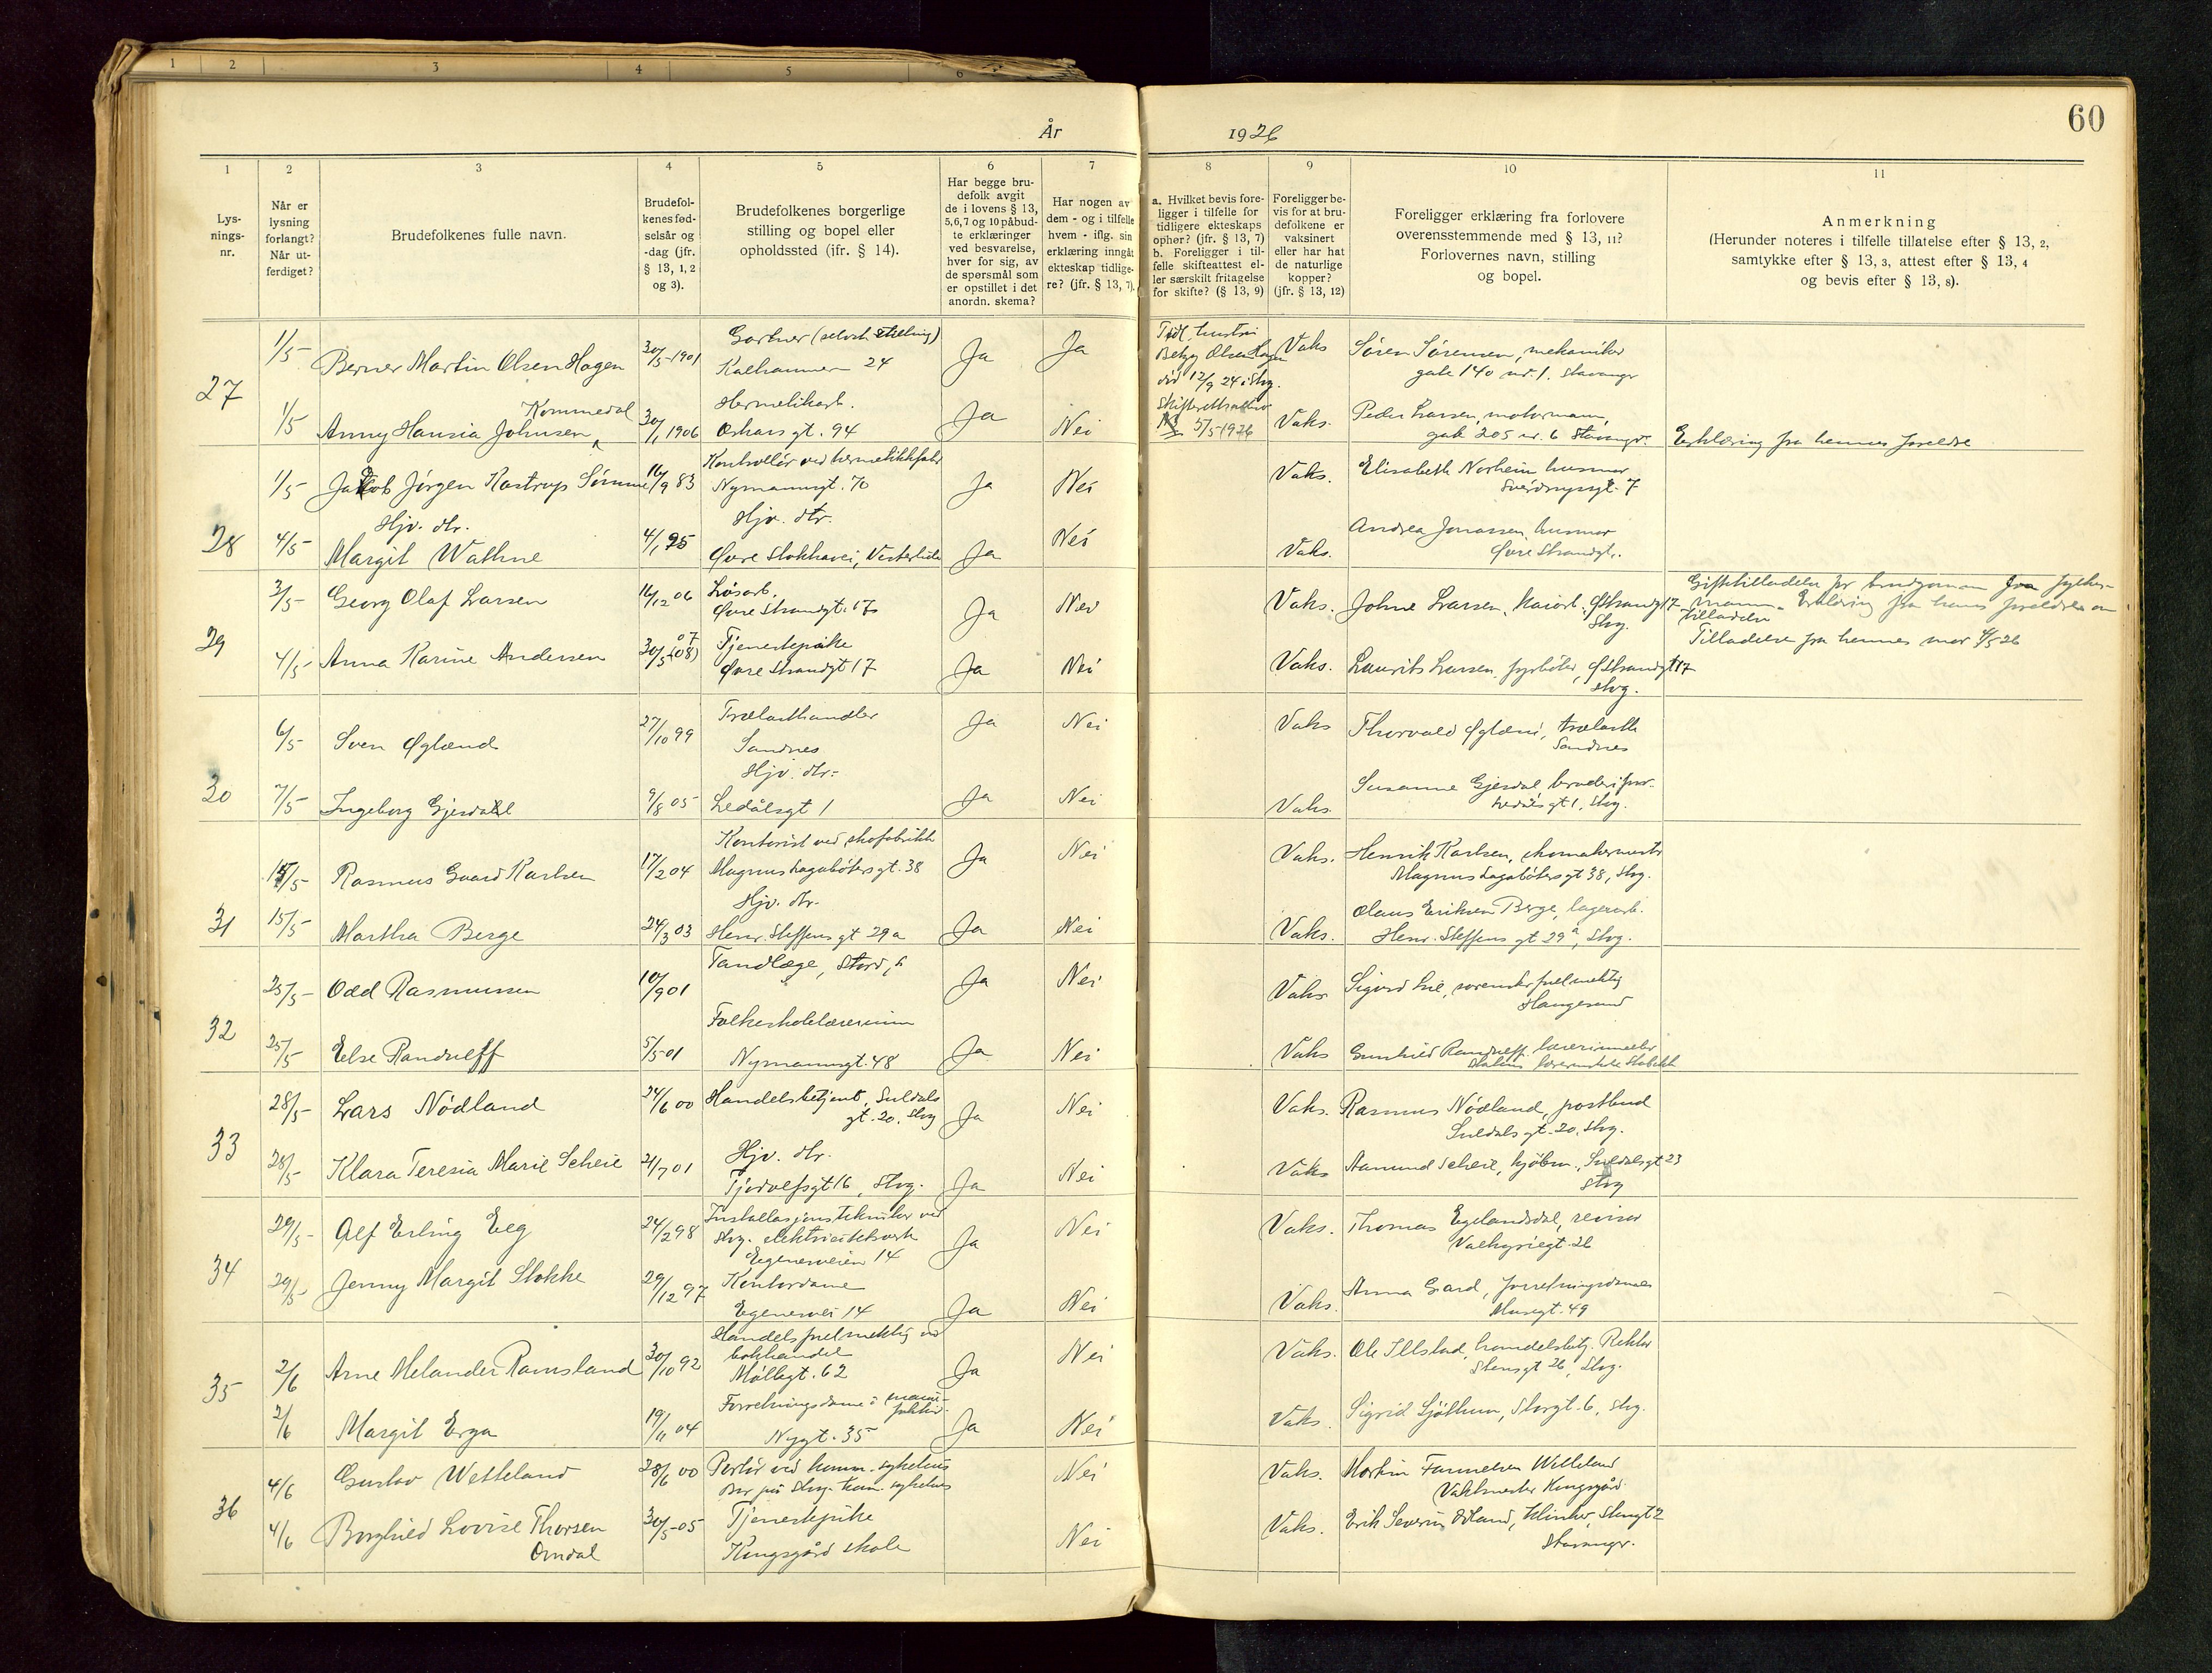 1 2 3 4 5 6
60
År 1926
1 2 3 4 5 6 7 8 9 10 11
Lys-
nings-
nr.
Når er
lysning
forlangt?
Når ut-
ferdiget?
Brudefolkenes fulle navn.
Brudefol-
kenes fød-
selsår og
-dag (jfr.
§ 13, 1, 2
og 3).
Brudefolkenes borgerlige
stilling og bopel eller
opholdssted (jfr. § 14).
Har begge bru-
defolk avgit
de i lovens § 13,
5,6,7 og 10 påbud-
te erklæringer
ved besvarelse,
hver for sig, av
de spørsmål som
er opstillet i det
anordn. skema?
Har nogen av
dem - og i tilfelle
hvem - iflg. sin
erklæring inngåt
ekteskap tidlige-
re? (jfr. § 13, 7).
a. Hvilket bevis fore-
ligger i tilfelle for
tidligere ekteskaps
ophør? (jfr. § 13, 7)
b. Foreligger i til-
felle skifteattest el-
ler særskilt fritagelse
for skifte? (§ 13, 9)
Foreligger be-
vis for at bru-
defolkene er
vaksinert
eller har hat
de naturlige
kopper?
(jfr. § 13, 12)
Foreligger erklæring fra forlovere
overensstemmende med § 13, 11?
Forlovernes navn, stilling
og bopel.
Anmerkning
(Herunder noteres i tilfelle tillatelse efter § 13, 2,
samtykke efter § 13, 3, attest efter § 13, 4
og bevis efter § 13, 8).
27
1/5 Berner Martin Olsen Hagen 30/5-1901 Gartner (selvst. stilling)
Kalhammer 24 Ja Ja
Tidl. hustru
Betzy Olsen Hagen
død 12/9 24 i Stvg.
Vaks Søren Sørensen, mekaniker
gate 140 nr. 1. Stavanger
Kommedal
1/5 Anny Hansia Johnsen 30/1 1906 Hermetikarb.
Oskarsgt. 94 Ja Nei
5/5-1926
Vaks. Peder Larsen, motormann,
gate 205 nr. 6 Stavanger. Erklæring fra hennes foreldre
28
1/5 Jakob Jörgen Kastrup Sömme 16/9 83 Kontrollør ved hermetikkfabr
Nymannsgt. 70 Ja Nei Vaks. Elisabeth Norheim husmor
Sverdrupsgt. 7
4/5 Hjv. dtr.
Margit Wathne 4/1 95 Hjv. dtr.
Øvre Stokkavei, Vesterlide Ja Nei Vaks. Andrea Jonassen, husmor
Øvre Strandgt.
29
3/5 Georg Olaf Larsen 16/12 06 Løsarb.
Øvre Strandgt. 17 Ja Nei Vaks. Johne Larsen, Kaiarb. Ø Strandgt 17
Stvg.
Giftetilladelse for brudgommen fra fylkes-
mann. Erklæring fra hans foreldre om
tilladelse
Tilladelse fra hennes mor 4/5 26
4/5 Anna Karine Andersen 30/5 07 (08) Tjenestepike
Øvre Strandgt 17 Ja Nei Vaks. Laurits Larsen, fyrbøter, Ø Strandgt 17
Stvg.
30
6/5 Sven Øglænd 27/10 99 Trælasthandler
Sandnes Ja Nei Vaks Thorvald Øglænd, trælasth
Sandnes
7/5 Ingeborg Gjesdal 9/8 05 Hjv. dtr.
Ledålsgt 1 Ja Nei Vaks Susanne Gjesdal, broderiforr.
Ledålsgt 1, Stvg.
31
15/5 Rasmus Gaard Karlsen 17/2 04 Kontorist ved skofabrikk
Magnus Lagabøtersgt. 38 Ja Nei Vaks. Henrik Karlsen, skomakermester
Magnus Lagabøtersgt 38, Stvg.
15/5 Martha Berge 24/3 03 Hjv. dtr.
Henr. Steffens gt 29a Ja Nei Vaks. Olaus Eriksen Berge, lagerarb.
Henr. Steffens gt 29a, Stvg.
32
25/5 Odd Rasmussen 10/9 01 Tandlæge, Stord, Ja Nei Vaks Sigurd Lie, sorenskr.fuldmektig
Haugesund
25/5 Else Randulff 5/5 01 Folkeskolelærerinne
Nymannsgt. 48 Ja Nei Vaks Gunhild Randulff, lærerinne
33
28/5 Lars Nödland 24/6 00 Handelsbetjent, Suldals
gt. 20, Stvg Ja Nei Vaks. Rasmus Nödland, postbud
Suldalsgt. 20, Stvg.
28/5 Klara Teresia Marie Scheie 21/7 01 Hjv. dtr.
Tjodolfsgt 16, Stvg. Ja Nei Vaks Aamund Scheie, kjøbm., Suldalsgt 23
Stvg
34
29/5 Alf Erling Eeg 24/2 98 Installasjonstekniker ved
Stvg. elektrisitetsverk
Egenesveien 14 Ja Nei Vaks. Thomas Egelandsdal, revisor
Valkyriegt. 26
29/5 Jenny Margit Stokke 29/12 97 Kontordame
Egenesvei 14 Ja Nei Vaks. Anna Gard, forretningsdame
Musegt. 49
35
2/6 Arne Melander Ramsland 30/10 92 Handelsfuldmektig ved
bokhandel
Møllegt. 62 Ja Nei Vaks. Ole Ilstad, handelsbetj. Rektor
Stensgt 26, Stvg.
2/6 Margit Erga 19/11 04 Forretningsdame i manu-
faktur
Nygt. 35 Ja Nei Vaks. Sigrid Sjöthun, Storgt. 6, Stvg.
36
4/6 Gustav Wetteland 28/6 00 Portør ved komm. sykehus
Bor på Stvg. kom. sykehus Nei Vaks. Martin Wetteland
Vaktmester Kongsgård
4/6 Borghild Lovise Thorsen
Omdal 30/5-05 Tjenestepike
Kongsgård skole Nei Vaks. Erik Severin Østland, klinker, Stengt 2
Stavanger.